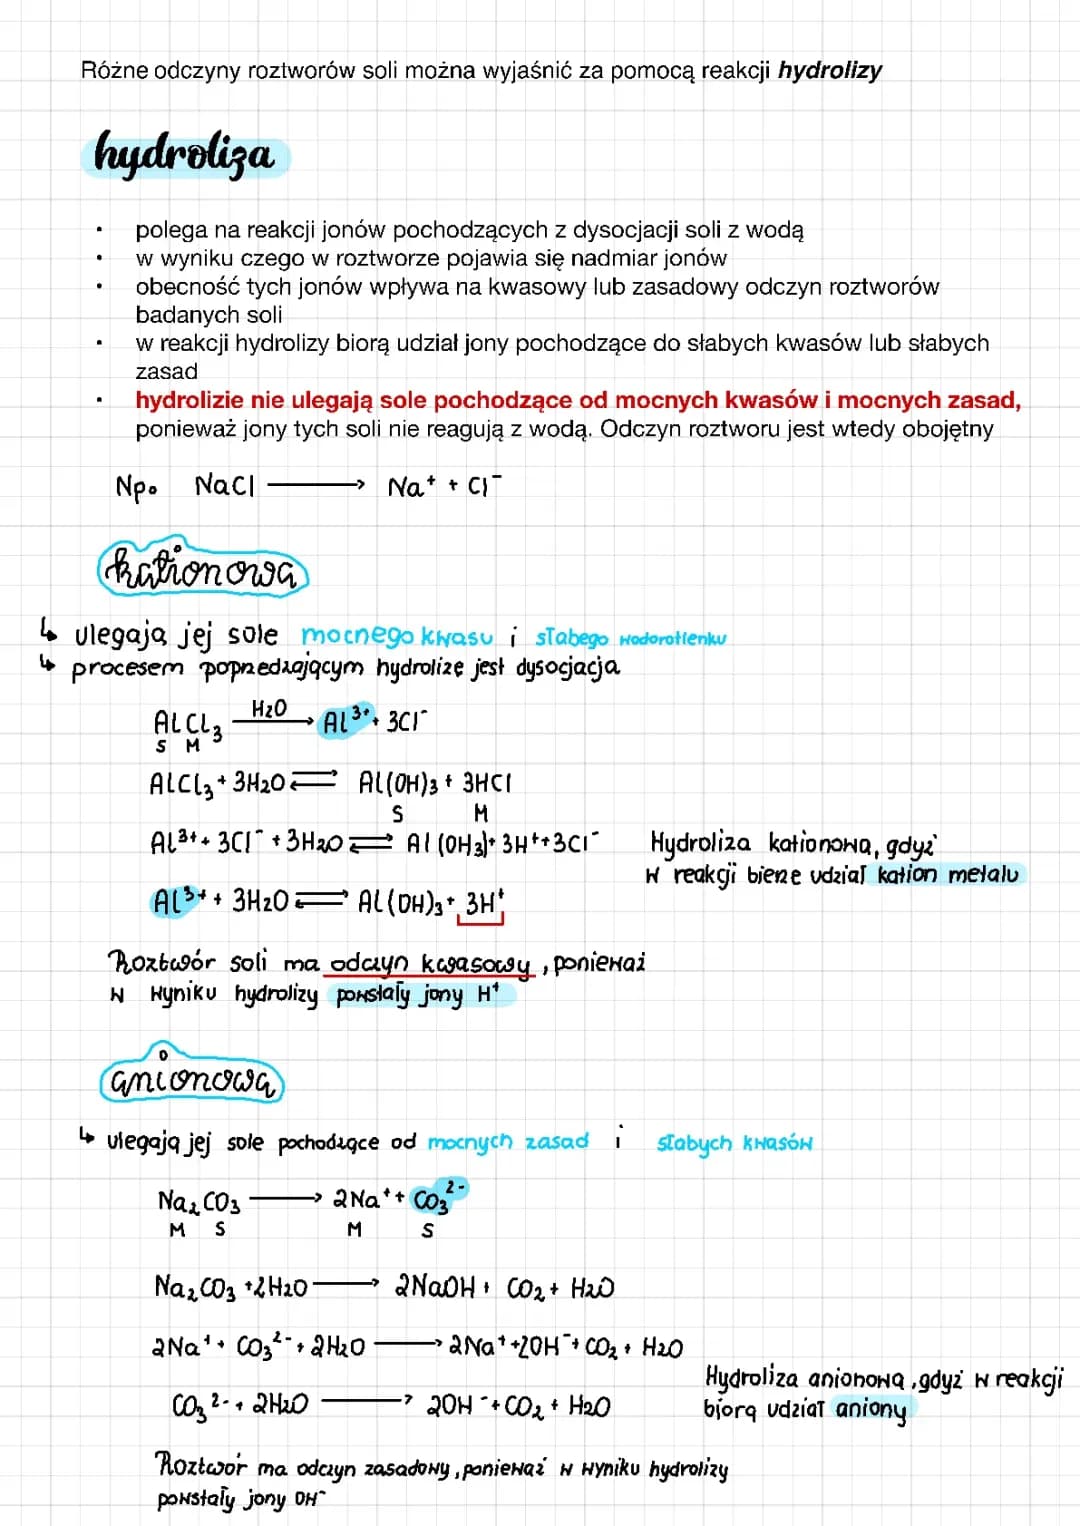 Różne odczyny roztworów soli można wyjaśnić za pomocą reakcji hydrolizy
hydroliza
• polega na reakcji jonów pochodzących z dysocjacji soli z wodą
• w wyniku czego w roztworze pojawia się nadmiar jonów
• obecność tych jonów wpływa na kwasowy lub zasadowy odczyn roztworów
badanych soli
• w reakcji hydrolizy biorą udział jony pochodzące do słabych kwasów lub słabych
zasad
• hydrolizie nie ulegają sole pochodzące od mocnych kwasów i mocnych zasad,
ponieważ jony tych soli nie reagują z wodą. Odczyn roztworu jest wtedy obojętny
Np. NaCl ⟶ Na⁺ + Cl⁻
kationowa
↳ ulegają jej sole mocnego kwasu i słabego wodorotlenku
↳ procesem poprzedzającym hydrolizę jest dysocjacja
AlCl₃ —H₂O→ Al³⁺ + 3Cl⁻
S M
AlCl₃ + 3H₂O ⇌ Al(OH)₃ + 3HCl
S M
Al³⁺ + 3Cl⁻ + 3H₂O ⇌ Al(OH₃)+ 3H⁺+3Cl⁻
Hydroliza kationowa, gdyż
w reakcji bierze udział kation metalu
Al³⁺ + 3H₂O ⇌ Al(OH)₃ + 3H⁺
Roztwór soli ma odczyn kwasowy, ponieważ
w wyniku hydrolizy powstały jony H⁺
anionowa
↳ ulegają jej sole pochodzące od mocnych zasad i słabych kwasów
Na₂CO₃ ⟶ 2Na⁺ + CO₃²⁻
M S M S
Na₂CO₃ + 2H₂O ⟶ 2NaOH + CO₂ + H₂O
2Na⁺ + CO₃²⁻ + 2H₂O ⟶ 2Na⁺ + 2OH⁻ + CO₂ + H₂O
Hydroliza anionowa, gdyż w reakcji
biorą udział aniony
CO₃²⁻ + 2H₂O ⟶ 2OH⁻ + CO₂ + H₂O
Roztwór ma odczyn zasadowy, ponieważ w wyniku hydrolizy
powstały jony OH⁻